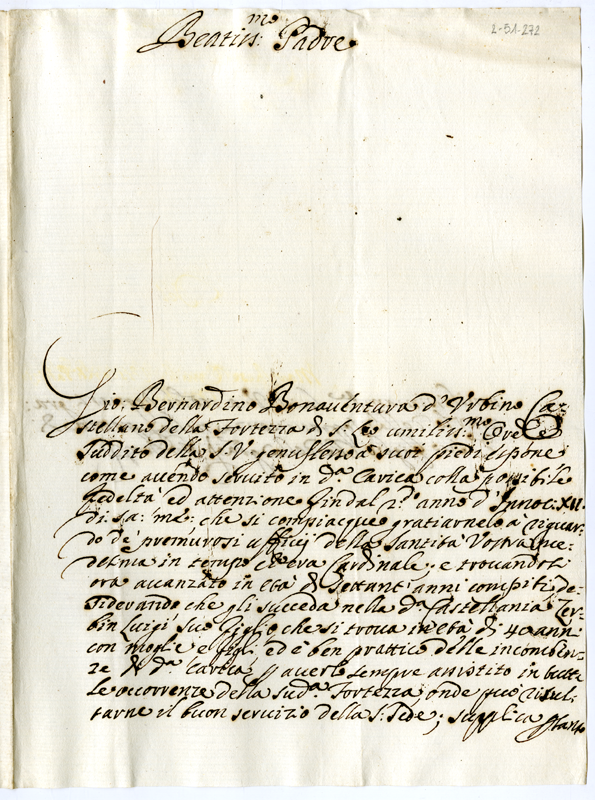 Beatiss:mo Padre
2-51-272
Gio: Bernardino Bonaventura d'Urbino Ca=
stellano della Fortezza di S: Leo umiliss:mo Ore
suddito della S. V. genuflesso a suoi piedi espone
come avendo servito in d.a Carica colla possibile
fedeltà ed attenzione sin dal p.o anno d'Innoc: XII.
di sa: me: che si compiacque gratiarnelo a riguar=
do de premurosi ufficij della Santità Vostra me=
desima in tempo ch'era Cardinale; e trovandosi
ora avanzato in età di settant'anni compiti de=
siderando che gli succeda nella d.a Castellania
bin Luigi suo figlio che si trova in età di 40 anni
con moglie e figli ed è ben prattico delle incomben=
ze di d.a Carica p averlo sempre assistito in tutte
le occorrenze della sud.a Fortezza, onde può risul=
tarne il buon servizio della S: Sede; supplica